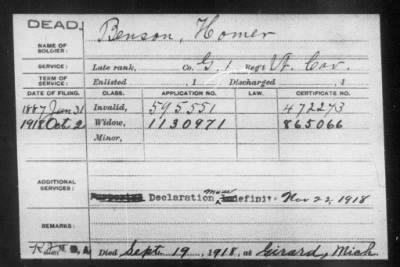 DEAD.
NAME OF SOLDIER: Benson, Homer
SERVICE: Late rank, Co. G, 1 Reg't Vt. Cav.
TERM OF SERVICE: Enlisted , 1 Discharged , 1
DATE OF FILING. CLASS. APPLICATION NO. LAW. CERTIFICATE NO.
1887 Jan 31 Invalid, 595551 472273
1918 Oct 2 Widow, 1130971 865066
Minor,
ADDITIONAL SERVICES: Declaration made indefinit. Nov 22, 1918
REMARKS:
Died Sept. 19, 1918, at Girard, Mich.